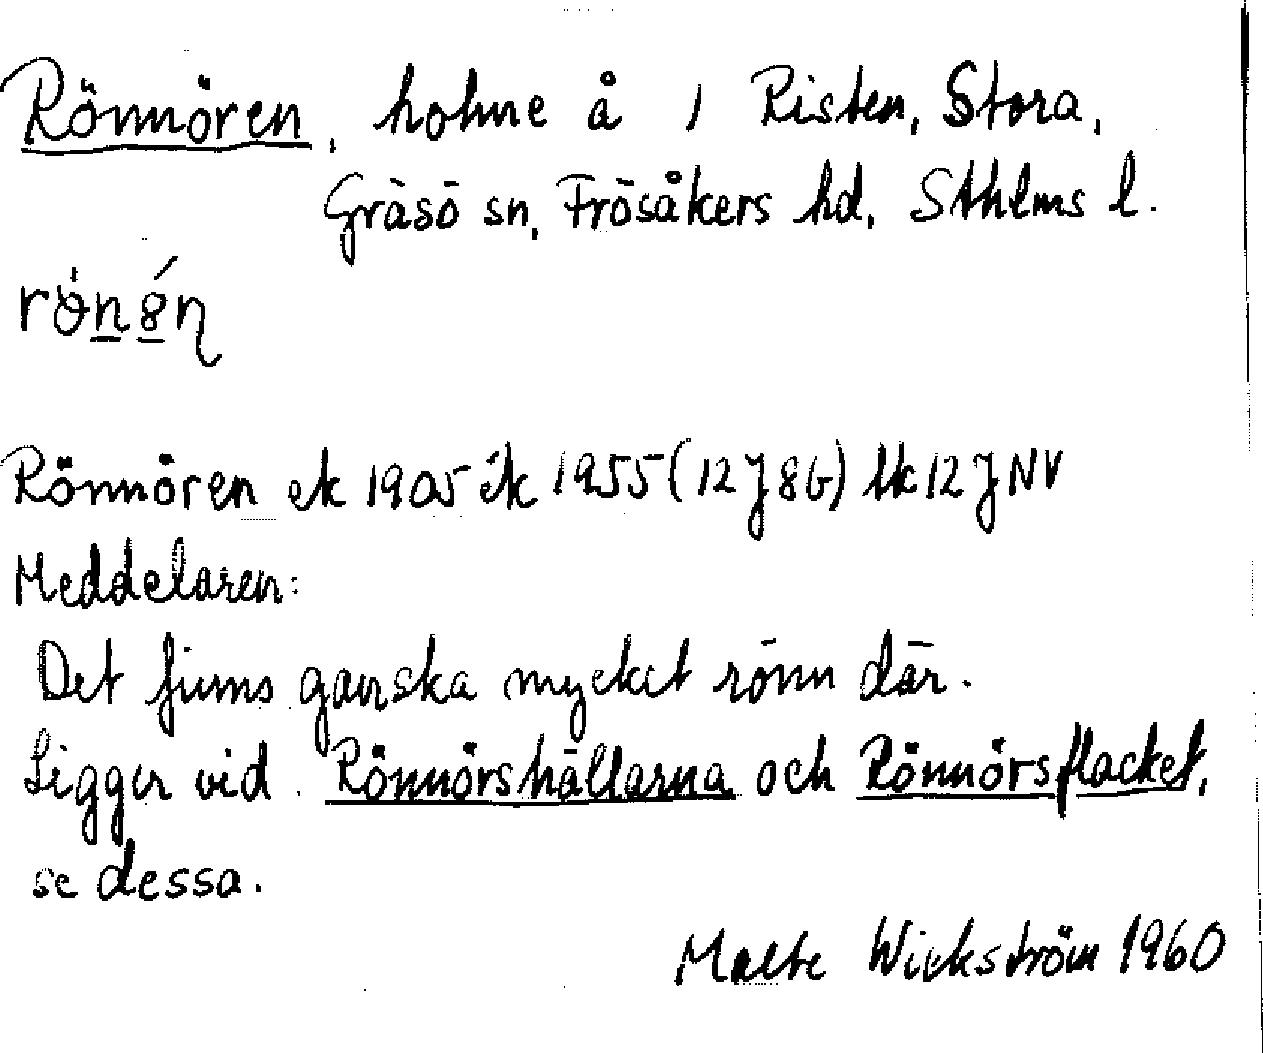 Rönnören, holme å 1 Risten, Stora,
Gräsö sn, Frösåkers hd, Sthlms l.
Rönnören ek 1905 ek 1955 (12J8G) lk 12J NV
Meddelaren:
Det finns ganska mycket rönn där.
Ligger vid Rönnörshällarna och Rönnörsflacket,
se dessa.
Malte Wickström 1960